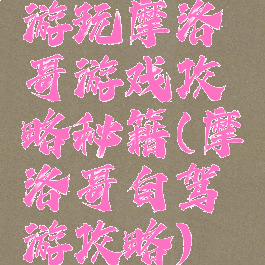 游玩摩洛
哥游戏攻
略秘籍(摩
洛哥自驾
游攻略)